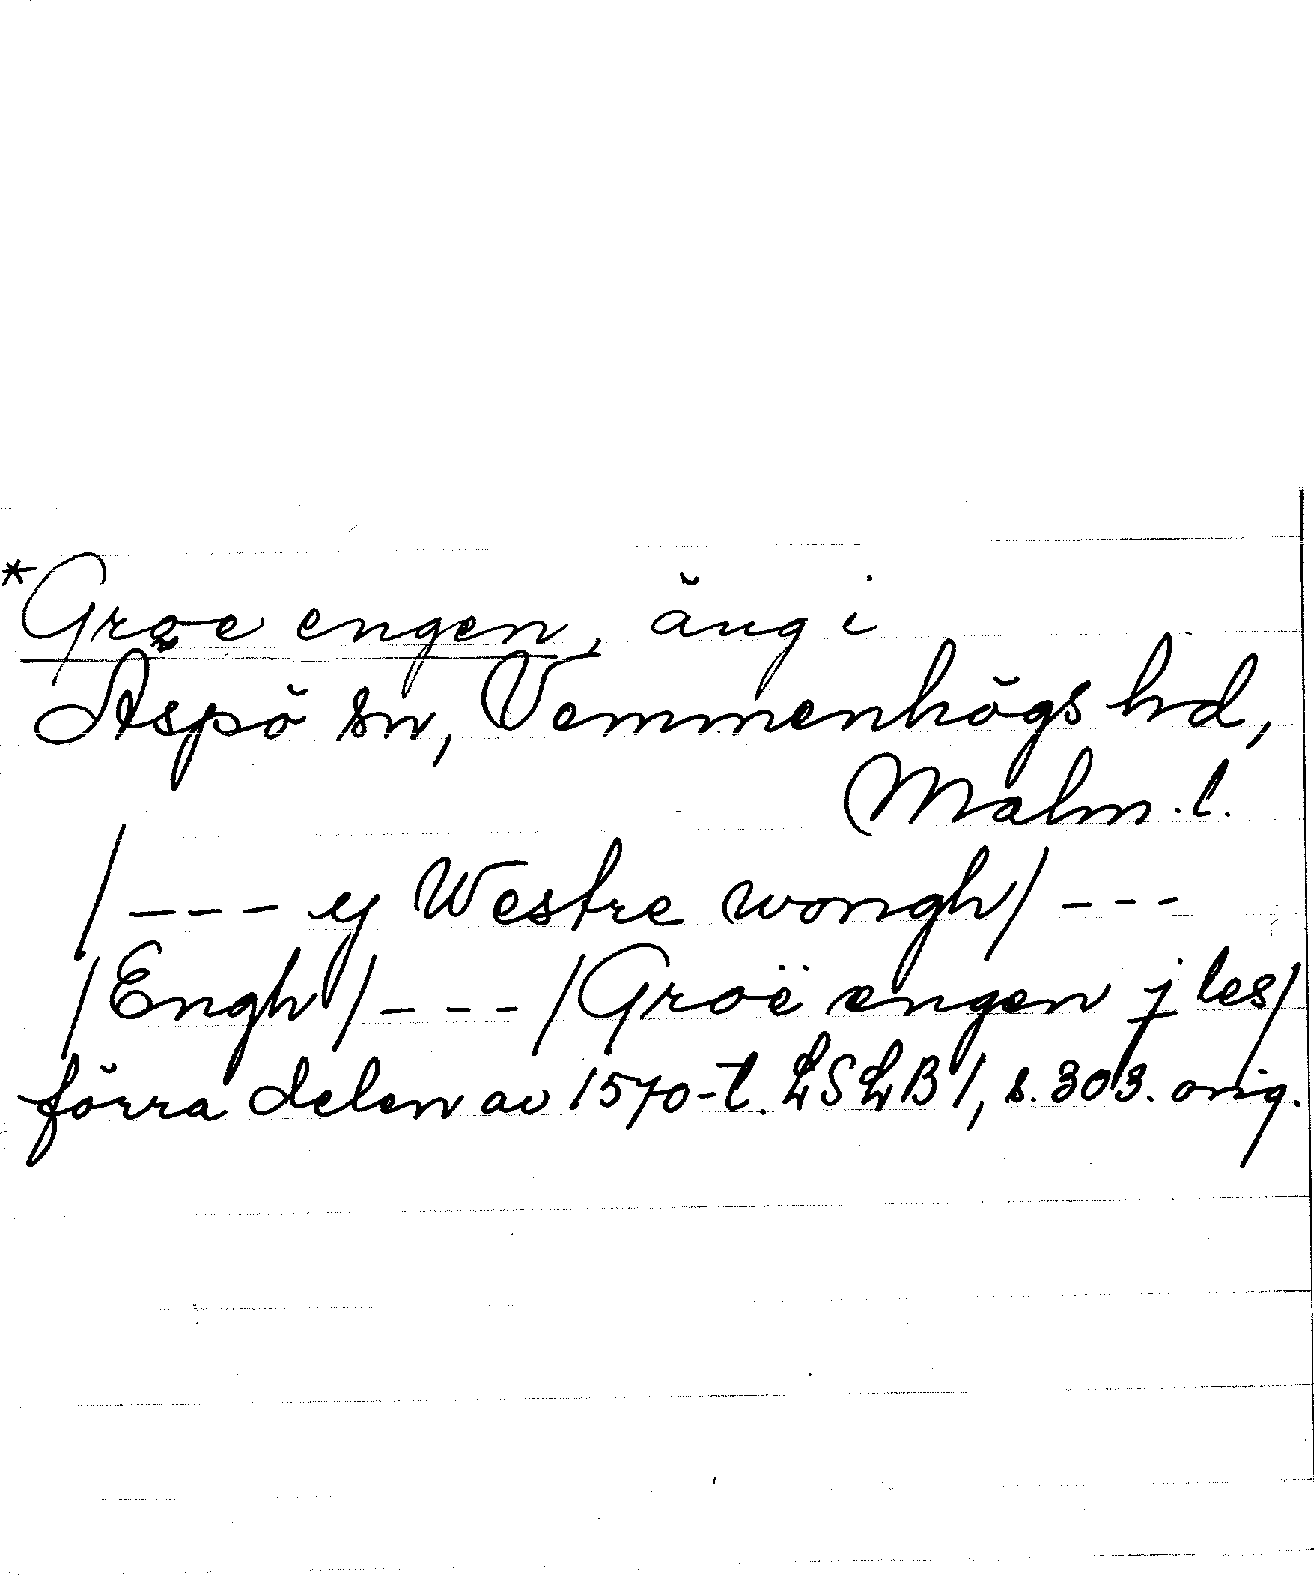 *Groe engen, äng i
Äspö sn, Vemmenhögs hd,
Malm. l.
/--- y Westre wongh/ ---
/Engh/ --- /Groë engen j les/
förra delen av 1570-t. LSLB 1, s. 303. orig.